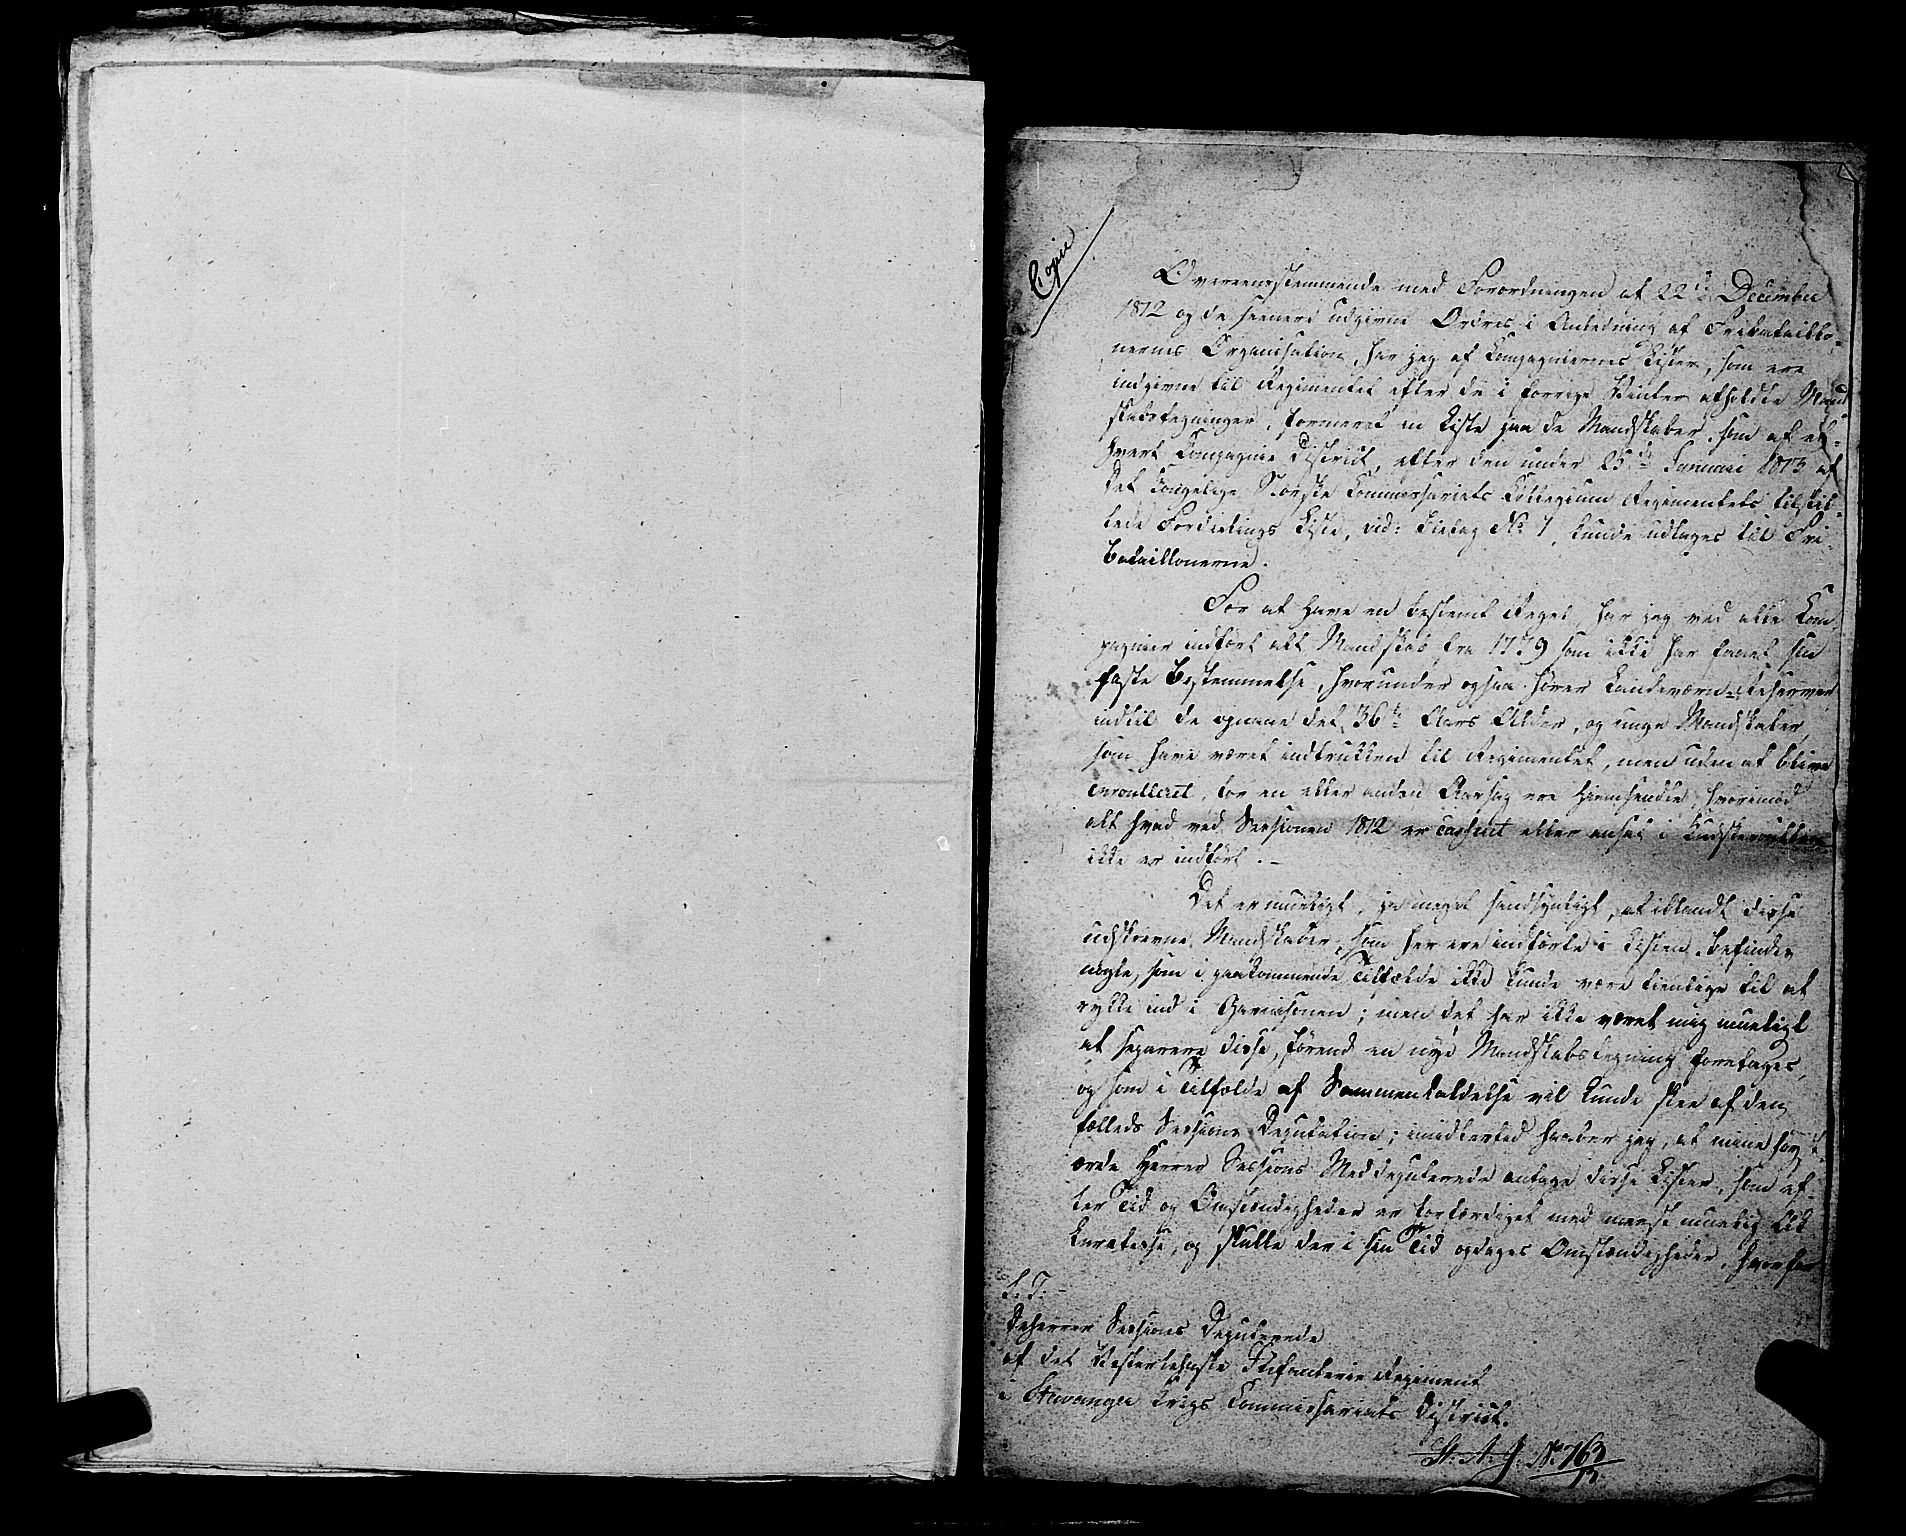 Copie
Overeensstemmende med Forordningen af 22de December
1812 og de seenere udgivne Ordres i Anledning af Fribataillo-
nernes Organisation, har jeg af Compagniernes Lister, som ere
indgivne til Regimentet efter de i forrige Vinter afholdte Mand
skabstegninger, formeret en Liste paa de Mandskaber, som af et-
hvert Compagnie District, efter den under 25de Januari 1813 af
det Kongelige Norske Commissariats Collegium Regimentets tilstil-
lede Fordelings Liste, vid: Bielag No 1, kunde udtages til Fri-
Bataillonerne.
For at have en bestemt Regel, har jeg ved alle Com-
pagnier indført alt Mandskab fra 1779 som ikke har faaet sin
faste Bestemmelse, hvorunder ogsaa hører Landeværns Reserver
indtil de opnaae det 36te Aars Alder, og unge Mandskaber,
som have været indtrukken til Regimentet, men uden at blive
enroulleret, for en eller anden Aarsag ere hiemsendte, hvorimod
alt hvad ved Sessionen 1812 er casseret eller ansat i
ikke er indført. -
Det er mueligt, ja meget sandsynligt, at iblandt disse
udskrevne Mandskaber, som her ere indførte i Listen, befindes
nogle, som i paakommende Tilfælde ikke kunde være tienlige til at
rykke ind i Garnisonen; men det har ikke været mig mueligt
at separere disse, førend en nye Mandskabstegning foretages,
og som i Tilfælde af Sammenkaldelse vil kunde skee af den
fælleds Sessions Deputation; imidlertid haaber jeg, at mine høyst-
ærede Herrer Sessions Meddeputerede antage disse Lister, som ef-
ter Tid og Omstændigheder er forfærdiget med meest muelig Ak
kuratesse, og skulle der i sin Tid opdages Omstændigheder, hvorfor
S. T.
De herrer Sessions Deputerede
af det Vesterlehnske Infanterie Regiment
i Stavanger Krigs Commissariats District.
St. A. J. No 763/13